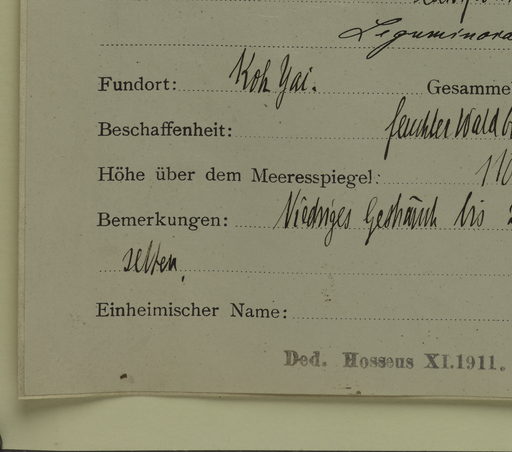 Leguminosa
Fundort: Koh Yai. Gesamme
Beschaffenheit: feuchter Wald
Höhe über dem Meeresspiegel: 110
Bemerkungen: Niedriges Gesträuch bis
selten.
Einheimischer Name:
Ded. Hosseus XI.1911.